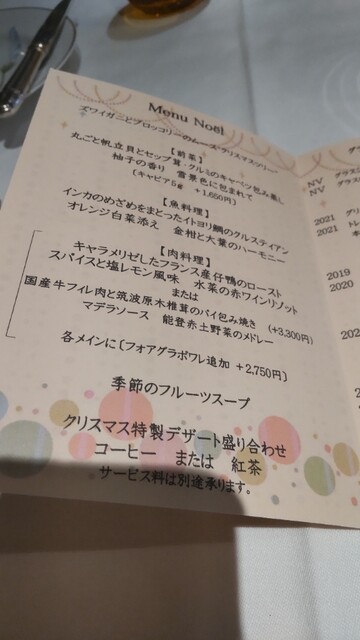 Menu Noël
ズワイガニとブロッコリーのムース・クリスマスツリー
【前菜】
丸ごと帆立貝とセップ茸・クルミのキャベツ包み蒸し
柚子の香り 雪景色に包まれて
〔キャビア5g +1,650円〕
【魚料理】
インカのめざめをまとったイトヨリ鯛のクルスティアン
オレンジ白菜添え 金柑と大葉のハーモニー
【肉料理】
キャラメリゼしたフランス産仔鴨のロースト
スパイスと塩レモン風味 水菜の赤ワインリゾット
または
国産牛フィレ肉と筑波原木椎茸のパイ包み焼き (+3,300円)
マデラソース 能登赤土野菜のメドレー
各メインに〔フォアグラポワレ追加 +2,750円〕
季節のフルーツスープ
クリスマス特製デザート盛り合わせ
コーヒー または 紅茶
サービス料は別途承ります。
グラス
NV グラス
NV
2021 グリ
2021 トレ
2019
2020
202